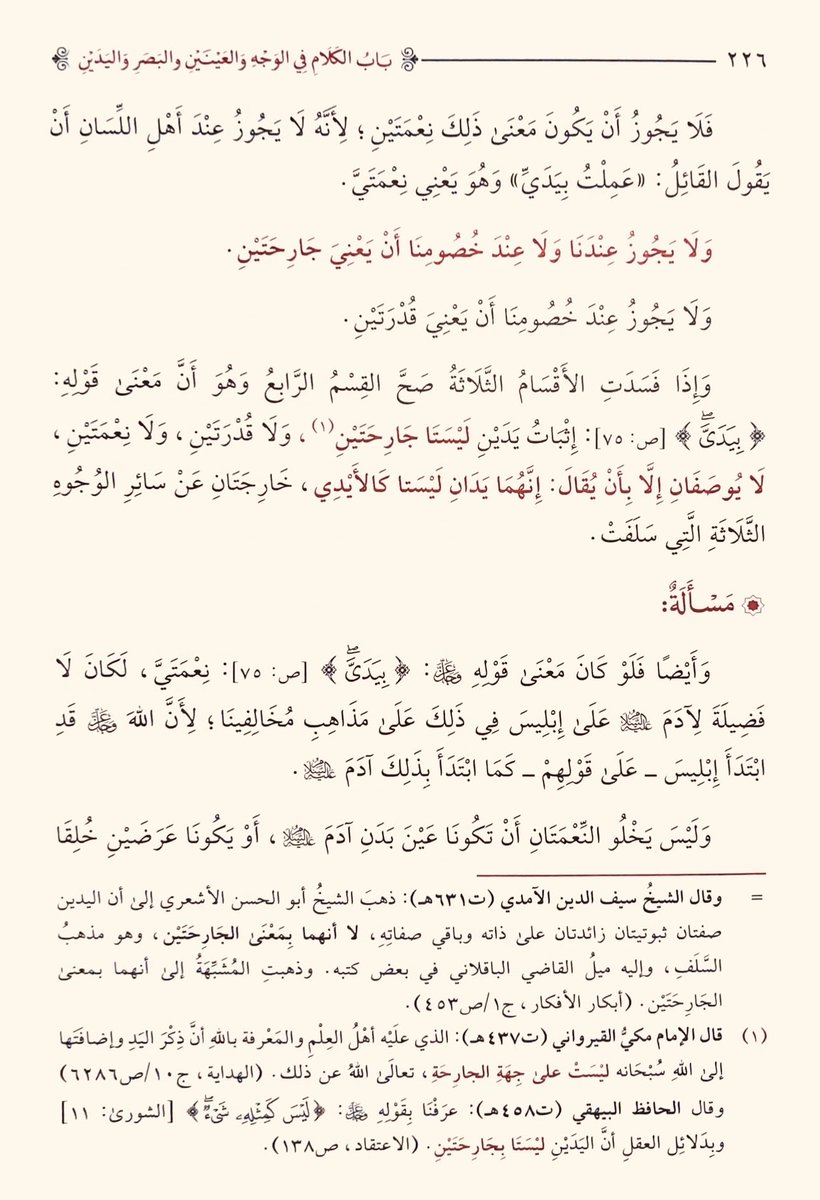 ٢٢٦ بَابُ الكَلَامِ فِي الوَجْهِ وَالعَيْنَيْنِ والبَصَرِ وَاليَدَيْنِ
فَلَا يَجُوزُ أَنْ يَكُونَ مَعْنَىٰ ذَلِكَ نِعْمَتَيْنِ؛ لِأَنَّهُ لَا يَجُوزُ عِنْدَ أَهْلِ اللِّسَانِ أَنْ
يَقُولَ القَائِلُ: «عَمِلْتُ بِيَدَيِّ» وَهُوَ يَعْنِي نِعْمَتَيَّ.
وَلَا يَجُوزُ عِنْدَنَا وَلَا عِنْدَ خُصُومِنَا أَنْ يَعْنِيَ جَارِحَتَيْنِ.
وَلَا يَجُوزُ عِنْدَ خُصُومِنَا أَنْ يَعْنِيَ قُدْرَتَيْنِ.
وَإِذَا فَسَدَتِ الأَقْسَامُ الثَّلَاثَةُ صَحَّ القِسْمُ الرَّابِعُ وَهُوَ أَنَّ مَعْنَىٰ قَوْلِهِ:
﴿بِيَدَىَّۖ﴾ [ص: ٧٥]: إِثْبَاتُ يَدَيْنِ لَيْسَتَا جَارِحَتَيْنِ(١)، وَلَا قُدْرَتَيْنِ، وَلَا نِعْمَتَيْنِ،
لَا يُوصَفَانِ إِلَّا بِأَنْ يُقَالَ: إِنَّهُمَا يَدَانِ لَيْسَتا كَالأَيْدِي، خَارِجَتَانِ عَنْ سَائِرِ الوُجُوهِ
الثَّلَاثَةِ الَّتِي سَلَفَتْ.
مَسْأَلَةٌ:
وَأَيْضًا فَلَوْ كَانَ مَعْنَىٰ قَوْلِهِ ﷿: ﴿بِيَدَىَّۖ﴾ [ص: ٧٥]: نِعْمَتَيَّ، لَكَانَ لَا
فَضِيلَةَ لِآدَمَ عليه السلام عَلَىٰ إِبْلِيسَ فِي ذَلِكَ عَلَىٰ مَذَاهِبِ مُخَالِفِينَا؛ لِأَنَّ اللهَ ﷿ قَدِ
ابْتَدَأَ إِبْلِيسَ ـ عَلَىٰ قَوْلِهِمْ ـ كَمَا ابْتَدَأَ بِذَلِكَ آدَمَ عليه السلام.
وَلَيْسَ يَخْلُو النِّعْمَتَانِ أَنْ تَكُونَا عَيْنَ بَدَنِ آدَمَ عليه السلام، أَوْ يَكُونَا عَرَضَيْنِ خُلِقَا
= وقال الشيخُ سيف الدين الآمدي (ت٦٣١هـ): ذهبَ الشيخُ أبو الحسن الأشعري إلىٰ أن اليدين
صفتان ثبوتيتان زائدتان علىٰ ذاته وباقي صفاتِهِ، لا أنهما بِمَعْنَىٰ الجَارِحَتَيْن، وهو مذهبُ
السَّلَفِ، وإليه ميلُ القاضي الباقلاني في بعض كتبه. وذهبتِ المُشَبِّهَةُ إلىٰ أنهما بمعنىٰ
الجَارِحَتَيْن. (أبكار الأفكار، ج١/ص٤٥٣).
(١) قال الإمام مكيُّ القيرواني (ت٤٣٧هـ): الذي علَيْه أهْلُ العِلْمِ والمَعْرفة باللهِ أنَّ ذِكْرَ اليَدِ وإضافَتَها
إلىٰ اللهِ سُبْحَانه ليْسَتْ علىٰ جِهَةِ الجارحةِ، تعالَىٰ اللهُ عن ذلك. (الهداية، ج١٠/ص٦٢٨٦)
وقال الحافظ البيهقي (ت٤٥٨هـ): عرَفْنَا بِقَوْلِهِ ﷿: ﴿لَيْسَ كَمِثْلِهِۦ شَىْءٞۖ﴾ [الشورىٰ: ١١]
وبِدَلائِلِ العقلِ أنَّ اليَدَيْنِ ليْسَتَا بِجَارِحَتَيْنِ. (الاعتقاد، ص١٣٨).